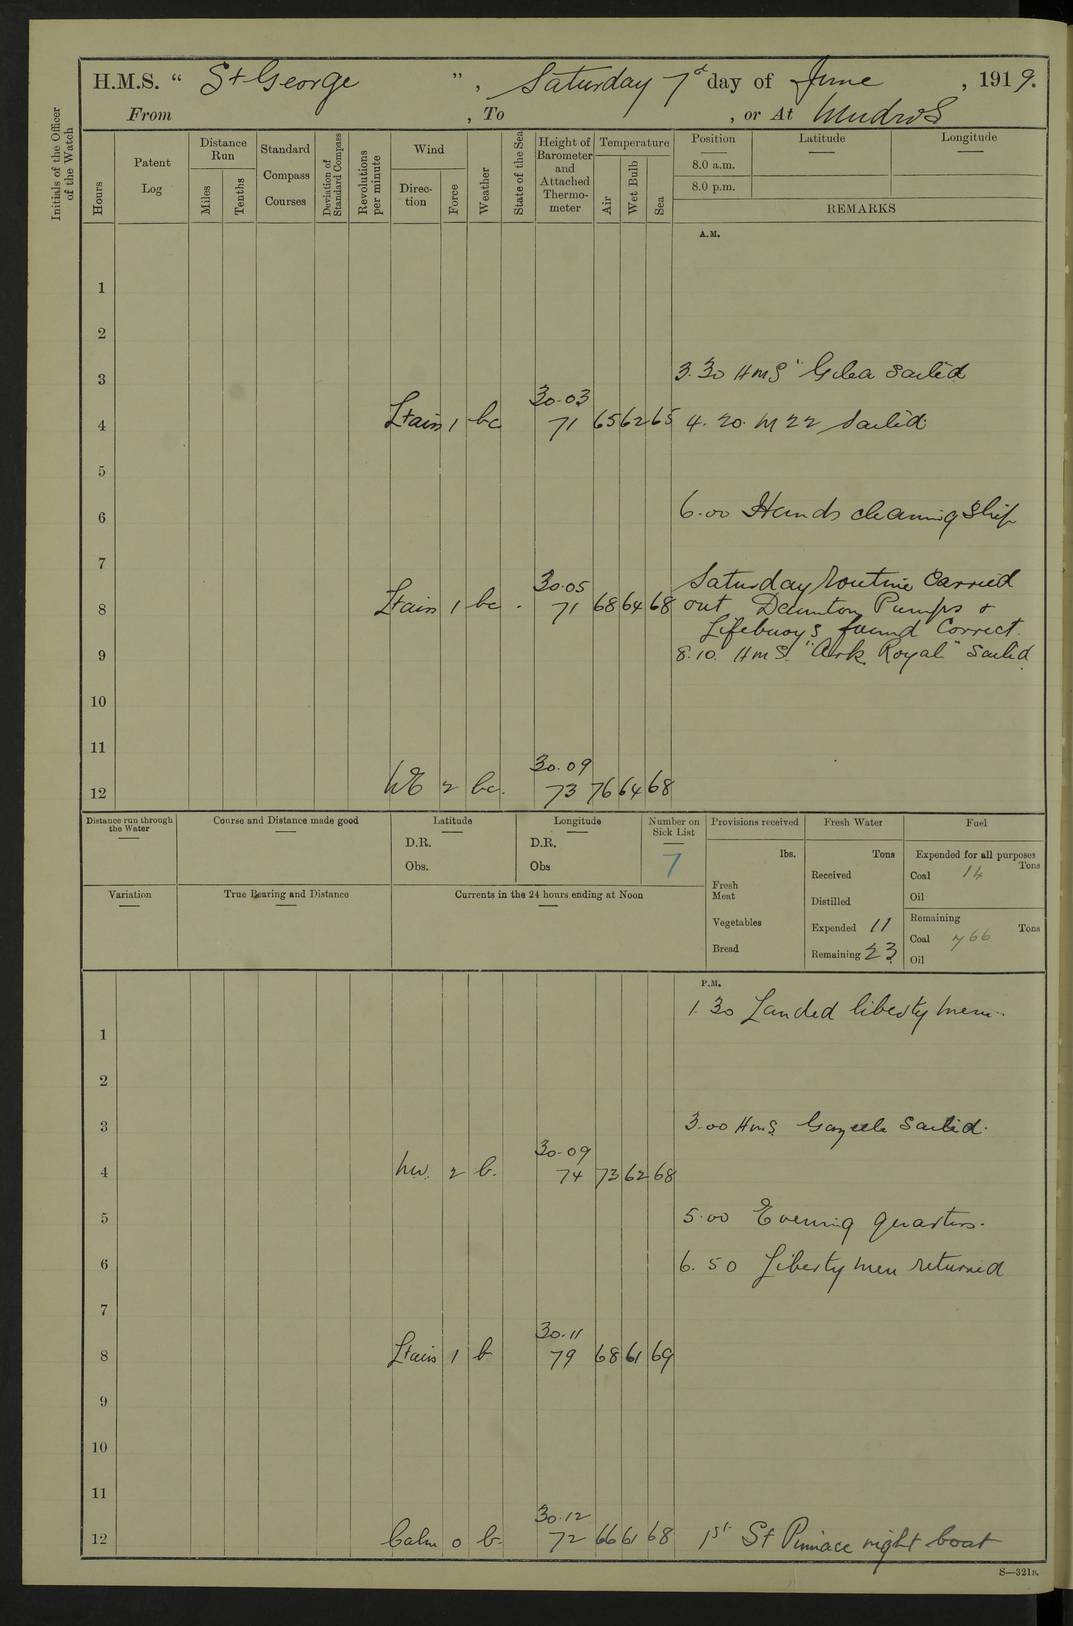 H.M.S. " St George ", Saturday 7th day of June, 1919.
From , To , or At Mudros
Initials of the Officer of the Watch
Hours
Patent Log
Distance Run
Miles
Tenths
Standard Compass Courses
Deviation of Standard Compass
Revolutions per minute
Wind
Direction
Force
Weather
State of the Sea
Height of Barometer and Attached Thermometer
Temperature
Air
Wet Bulb
Sea
Position
Latitude
Longitude
8.0 a.m.
8.0 p.m.
REMARKS
A.M.
1
2
3
3.30 HMS "Gilea Sailed
30.03
4 Ltairs 1 bc 71 65 62 65 4.20. M 22 Sailed
5
6 6.00 Hands cleaning Ship
7
30.05 Saturday Routine Carried
8 Ltairs 1 bc . 71 68 64 68 out, Downton Pumps &
Lifebuoys found Correct.
9 8.10. HMS. "Ark Royal" Sailed
10
11
30.09
12 2 bc. 73 76 64 68
Distance run through the Water
Course and Distance made good
Latitude
D.R.
Obs.
Longitude
D.R.
Obs
Number on Sick List
7
Provisions received
lbs.
Fresh Meat
Vegetables
Bread
Fresh Water
Tons
Received
Distilled
Expended 11
Remaining 23
Fuel
Expended for all purposes
Tons
Coal 14
Oil
Remaining
Tons
Coal 766
Oil
Variation
True Bearing and Distance
Currents in the 24 hours ending at Noon
P.M.
1.30 Landed liberty men.
1
2
3 3.00 HMS Gazelle Sailed.
30.09
4 NW. 2 b. 74 73 62 68
5 5.00 Evening quarters.
6 6.50 Liberty men returned
7
30.11
8 Ltairs 1 b 79 68 61 69
9
10
11
30.12
12 Calm 0 b. 72 66 61 68 1st St Pinnace night boat
S—321B.